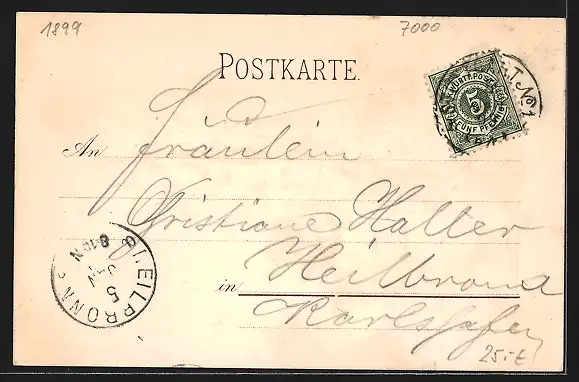 1899
7000
POSTKARTE.
K. WÜRTT. POST
5
FÜNF PFENNIG
T. No 1
An Fräulein
Cristiane Haller
in Heilbronn
Karlshafen
HEILBRONN
5 JAN
8-10 N
25.-€